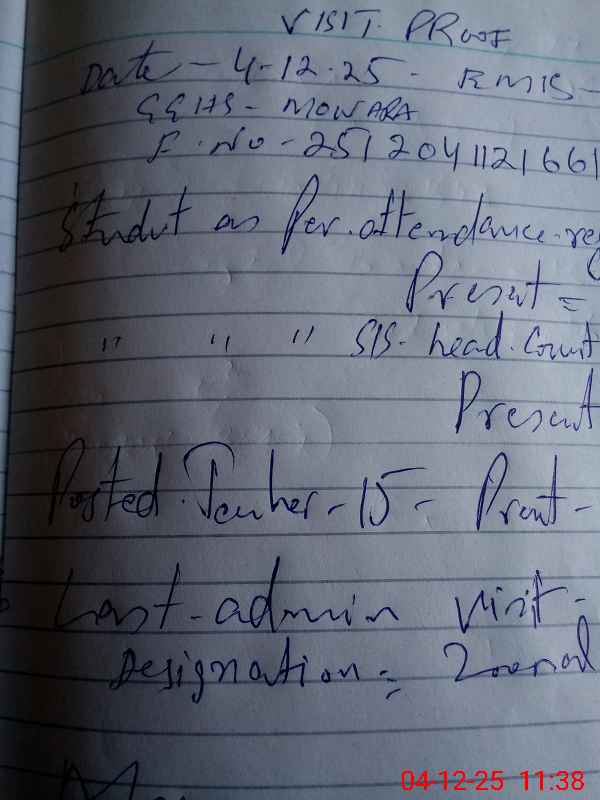 VISIT. PROOF
Date - 4-12-25 - EMIS -
GGHS - MOWARA
F. No - 251204112166
Studut as Per. attendance. re
Present =
" " " SIS. head. Count
Present
Posted. Teacher - 15 - Prent -
Last - admin visit -
Designation =
04-12-25 11:38